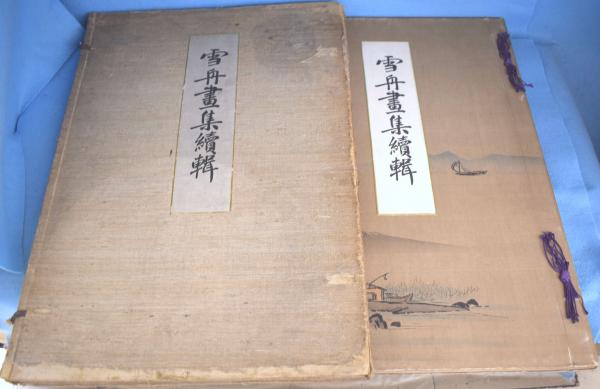 雪舟畫集續輯
雪舟畫集續輯